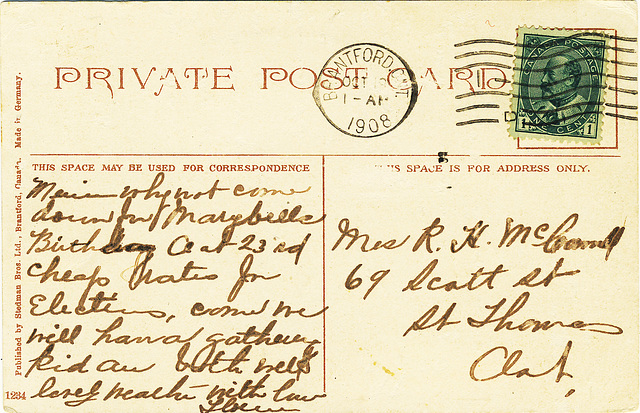 PRIVATE POST CARD
BRANTFORD, ONT.
OCT
1-AM
1908
CANADA POSTAGE
ONE CENT
1
THIS SPACE MAY BE USED FOR CORRESPONDENCE
THIS SPACE IS FOR ADDRESS ONLY.
why not come
down for Marybells
Birthday Oct 23rd
Cheap Rates for
Elections, come we
will have a gathering
Kid are both well
lovely weather with love
Mrs R. H. McConnell
69 Scott St
St Thomas
Ont.
Published by Stedman Bros. Ltd., Brantford, Canada. Made in Germany.
1234